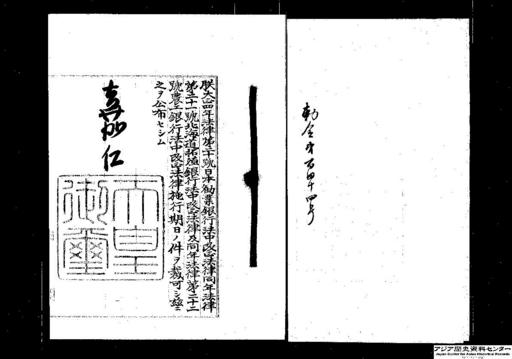 勅令第百四十四号
朕大正四年法律第二十號日本勧業銀行法中改正法律同年法律
第二十一號北海道拓殖銀行法中改正法律及同年法律第二十二
號農工銀行法中改正法律施行期日ノ件ヲ裁可シ茲ニ
之ヲ公布セシム
嘉仁
天皇
御璽
アジア歴史資料センター
Japan Center for Asian Historical Records